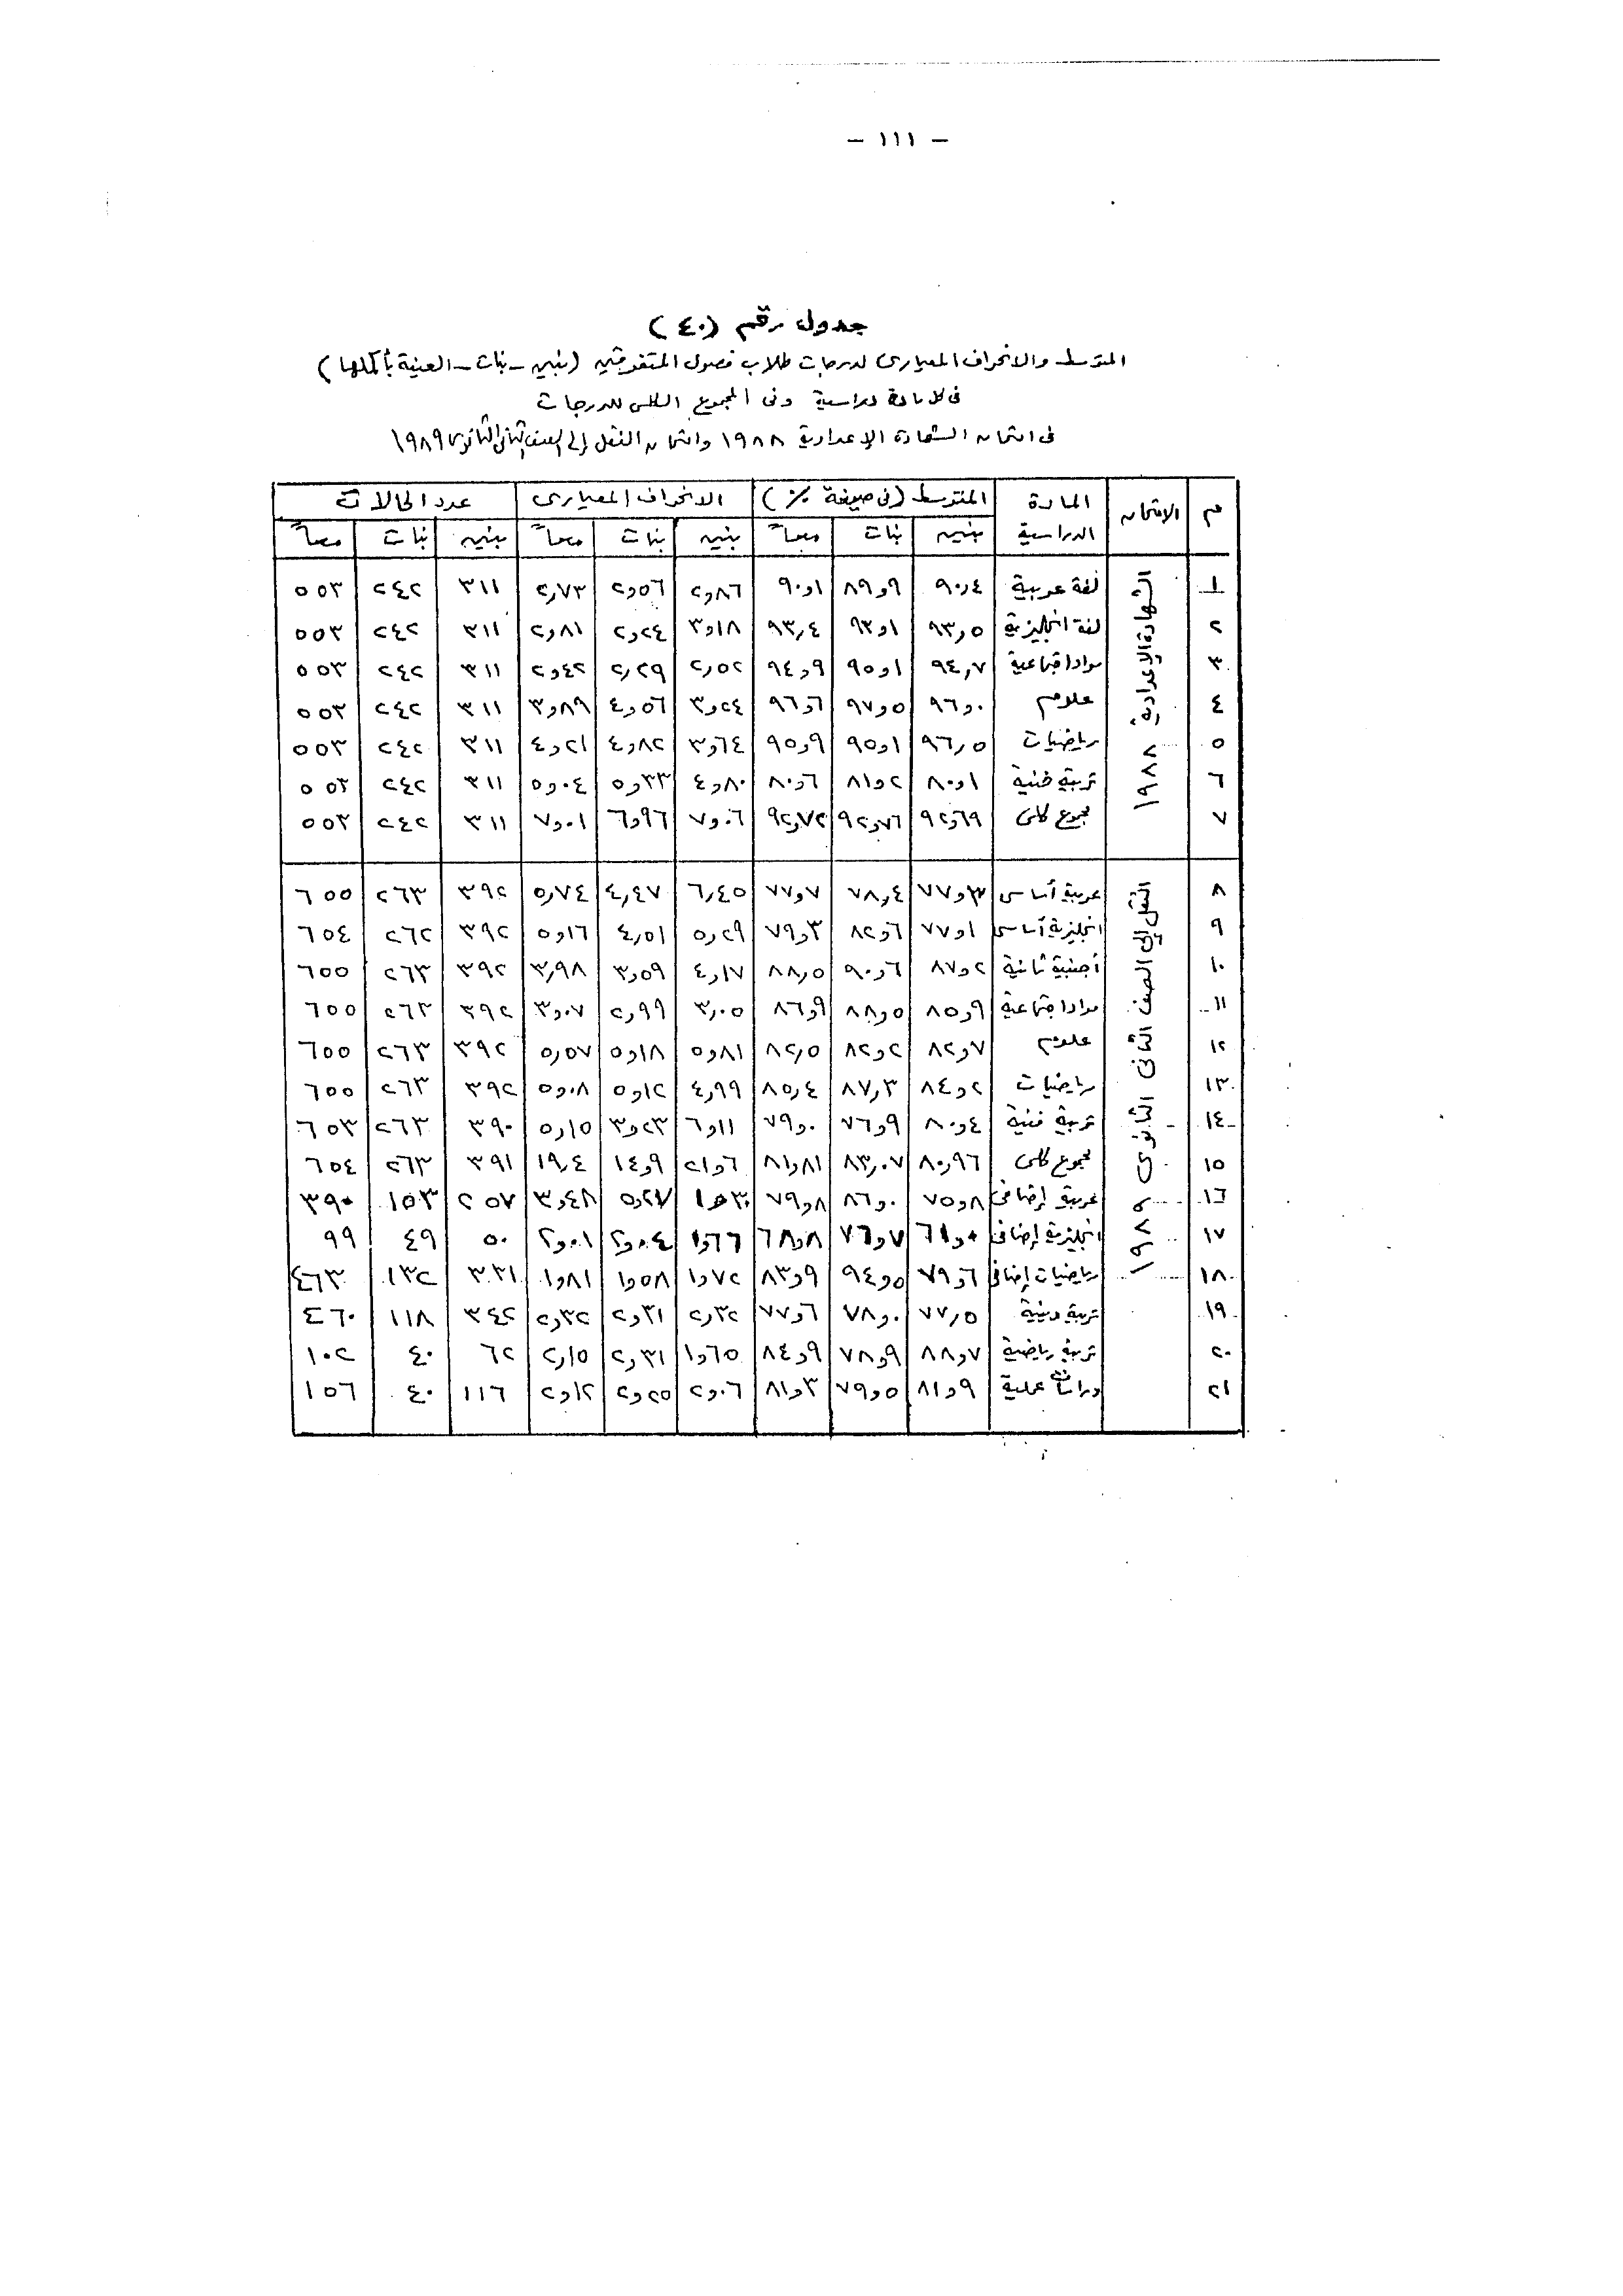 - ١١١ -
جدول رقم (٤٠)
المتوسط والانحراف المعيارى لدرجات طلاب فصول المتفوقين (بنين - بنات - العينة بأكملها)
فى كل مادة دراسية وفى المجموع الكلى للدرجات
فى امتحان الشهادة الإعدادية ١٩٨٨ وامتحان النقل إلى الصف الثانى الثانوى ١٩٨٩
م الامتحان المادة الدراسية المتوسط (فى صيغة ٪) الانحراف المعيارى عدد الحالات
بنين بنات معاً بنين بنات معاً بنين بنات معاً
الشهادة الإعدادية ١٩٨٨
١ لغة عربية ٩٠,٤ ٨٩,٩ ٩٠,١ ٢,٨٦ ٢,٥٦ ٢,٧٣ ٣١١ ٢٤٢ ٥٥٣
٢ لغة انجليزية ٩٣,٥ ٩٣,١ ٩٣,٤ ٣,١٨ ٢,٢٤ ٢,٨١ ٣١١ ٢٤٢ ٥٥٣
٣ مواد اجتماعية ٩٤,٧ ٩٥,١ ٩٤,٩ ٢,٥٢ ٢,٢٩ ٢,٤٢ ٣١١ ٢٤٢ ٥٥٣
٤ علوم ٩٦,٠ ٩٧,٥ ٩٦,٦ ٣,٢٤ ٤,٥٦ ٣,٨٩ ٣١١ ٢٤٢ ٥٥٣
٥ رياضيات ٩٦,٥ ٩٥,١ ٩٥,٩ ٣,٦٤ ٤,٨٢ ٤,٢١ ٣١١ ٢٤٢ ٥٥٣
٦ تربية فنية ٨٠,١ ٨١,٢ ٨٠,٦ ٤,٨٠ ٥,٣٣ ٥,٠٤ ٣١١ ٢٤٢ ٥٥٣
٧ مجموع كلى ٩٢,٦٩ ٩٢,٧٦ ٩٢,٧٢ ٧,٠٦ ٦,٩٦ ٧,٠١ ٣١١ ٢٤٢ ٥٥٣
النقل إلى الصف الثانى الثانوى ١٩٨٩
٨ عربية أساسى ٧٧,٣ ٧٨,٤ ٧٧,٧ ٦,٤٥ ٤,٤٧ ٥,٧٤ ٣٩٢ ٢٦٣ ٦٥٥
٩ انجليزية أساسى ٧٧,١ ٨٢,٦ ٧٩,٣ ٥,٢٩ ٤,٥١ ٥,١٦ ٣٩٢ ٢٦٢ ٦٥٤
١٠ أجنبية ثانية ٨٧,٢ ٩٠,٦ ٨٨,٥ ٤,١٧ ٣,٥٩ ٣,٩٨ ٣٩٢ ٢٦٣ ٦٥٥
١١ مواد اجتماعية ٨٥,٩ ٨٨,٥ ٨٦,٩ ٣,٠٥ ٢,٩٩ ٣,٠٧ ٣٩٢ ٢٦٣ ٦٥٥
١٢ علوم ٨٢,٧ ٨٢,٢ ٨٢,٥ ٥,٨١ ٥,١٨ ٥,٥٧ ٣٩٢ ٢٦٣ ٦٥٥
١٣ رياضيات ٨٤,٢ ٨٧,٣ ٨٥,٤ ٤,٩٩ ٥,١٢ ٥,٠٨ ٣٩٢ ٢٦٣ ٦٥٥
١٤ تربية فنية ٨٠,٤ ٧٦,٩ ٧٩,٠ ٦,١١ ٣,٢٣ ٥,١٥ ٣٩٠ ٢٦٣ ٦٥٣
١٥ مجموع كلى ٨٠,٩٦ ٨٣,٠٧ ٨١,٨١ ٢١,٦ ١٤,٩ ١٩,٤ ٣٩١ ٢٦٣ ٦٥٤
١٦ عربية إضافى ٧٥,٨ ٨٦,٠ ٧٩,٨ ٥,٢٧ ٣,٤٨ ٢٥٧ ١٥٣ ٣٩٠
١٧ انجليزية إضافى ٦١,٠ ٧٦,٧ ٦٨,٨ ١,٦٦ ٢,٠٤ ٢,٠١ ٥٠ ٤٩ ٩٩
١٨ رياضيات إضافى ٧٩,٦ ٩٤,٥ ٨٣,٩ ١,٧٢ ١,٥٨ ١,٨١ ٣٣١ ١٣٢ ٤٦٣
١٩ تربية دينية ٧٧,٥ ٧٨,٠ ٧٧,٦ ٢,٣٢ ٢,٣١ ٢,٣٢ ٣٤٢ ١١٨ ٤٦٠
٢٠ تربية رياضية ٨٨,٧ ٧٨,٩ ٨٤,٩ ١,٦٥ ٢,٣١ ٢,١٥ ٦٢ ٤٠ ١٠٢
٢١ دراسات عملية ٨١,٩ ٧٩,٥ ٨١,٣ ٢,٠٦ ٢,٢٥ ٢,١٢ ١١٦ ٤٠ ١٥٦